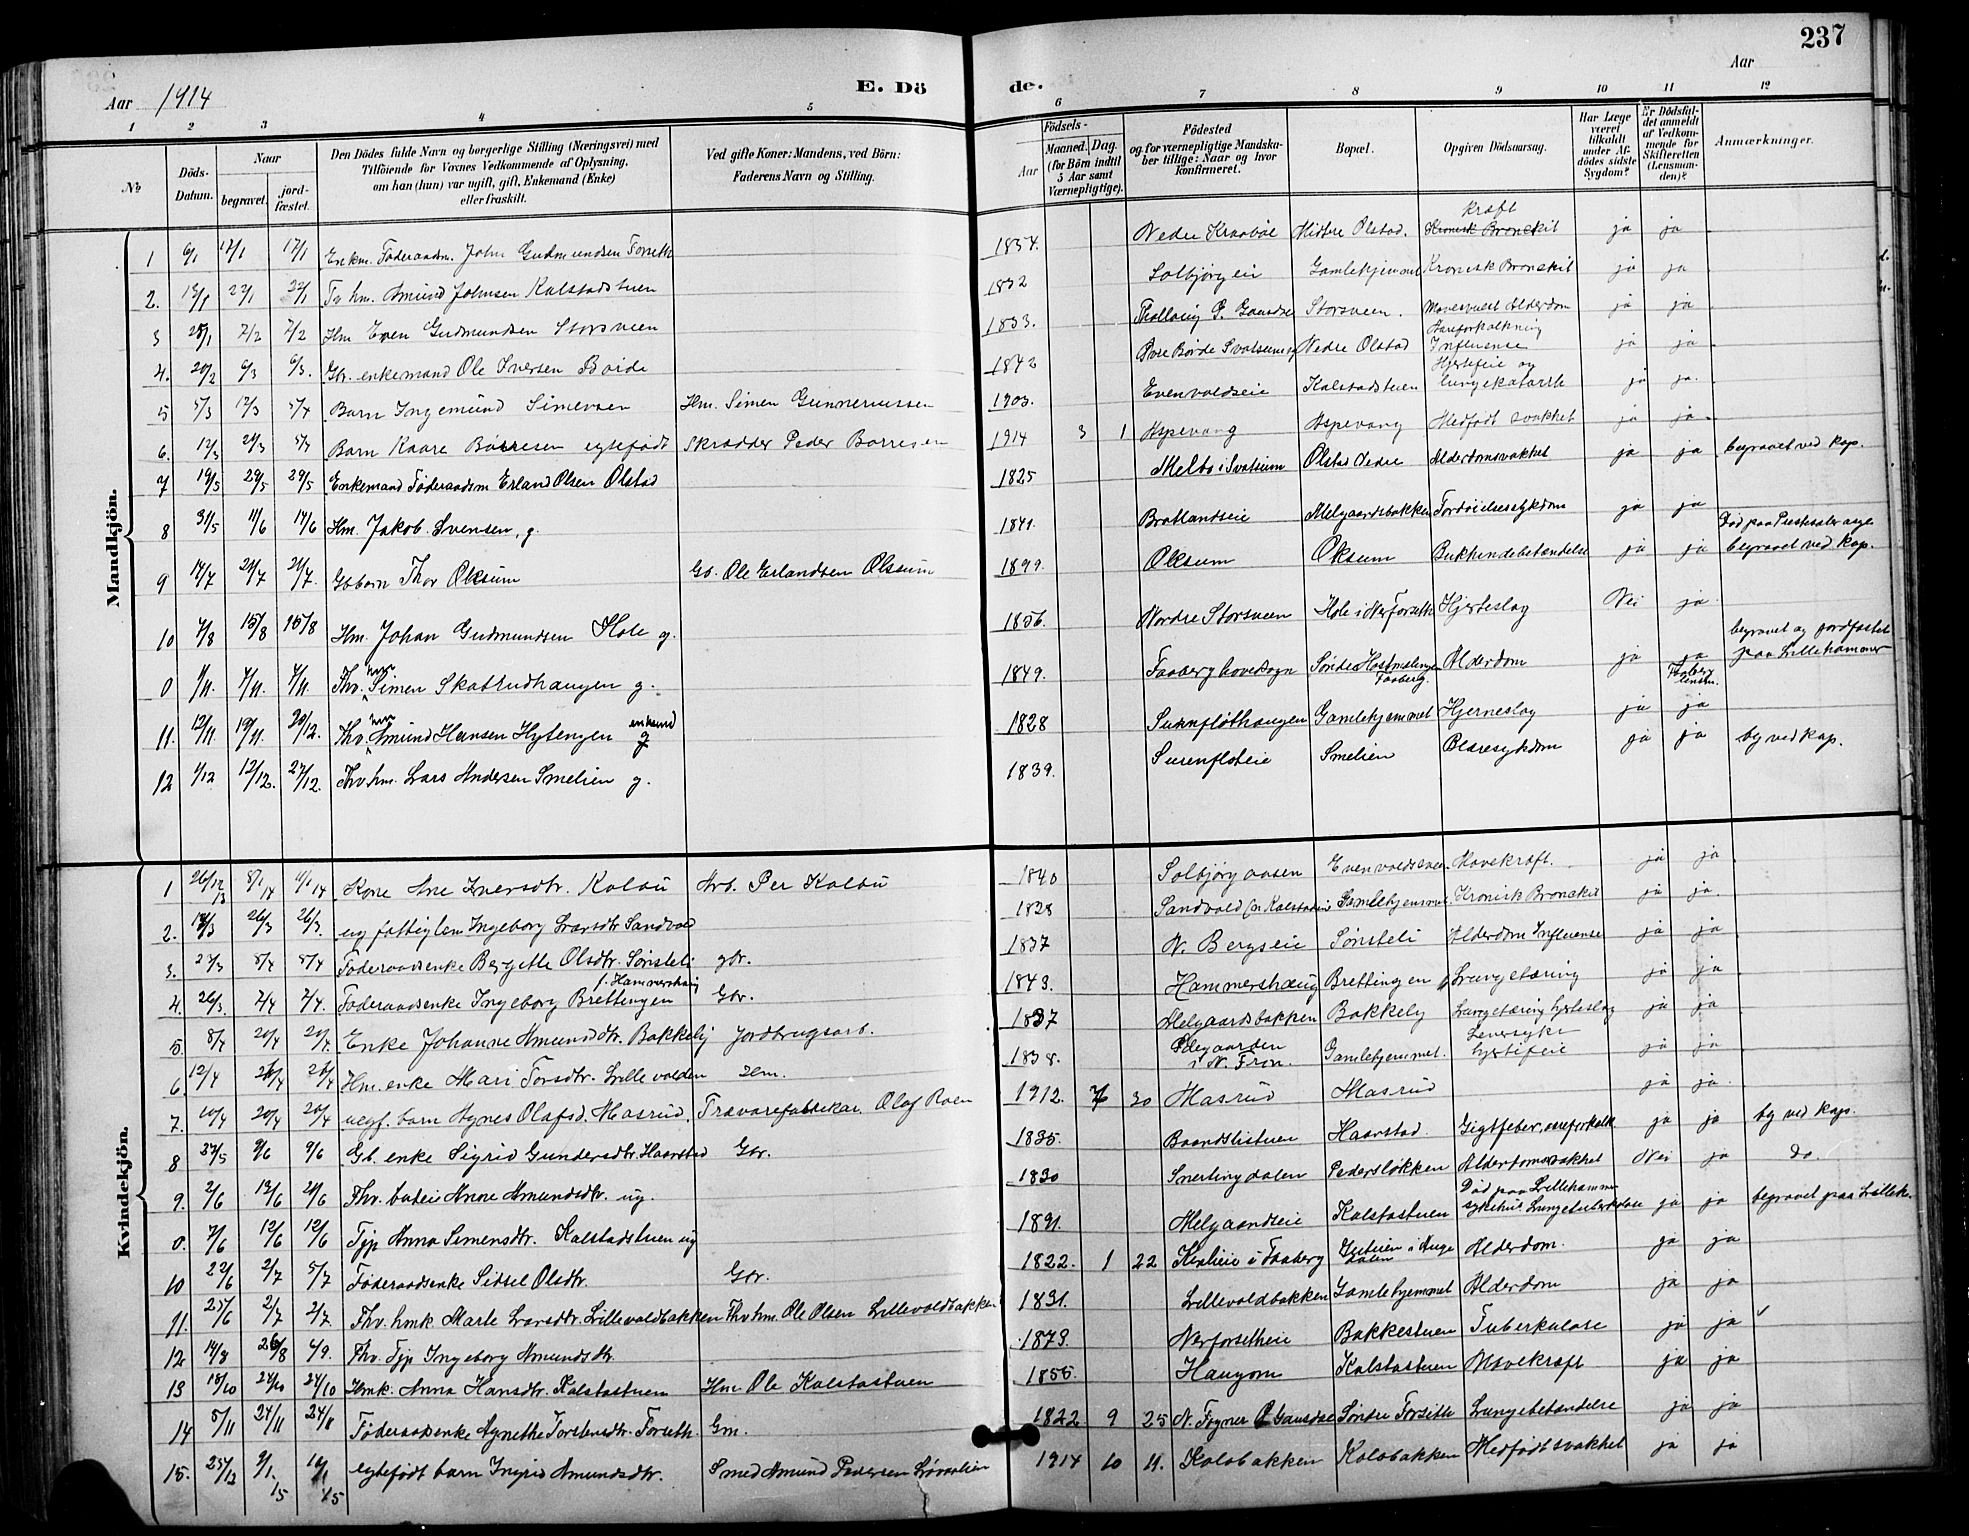 237
Aar 1914
E. Dö de.
Aar
1 2 3 4 5 6 7 8 9 10 11 12
No
Döds-Datum.
Naar
begravet.
jord-fæstet.
Den Dödes fulde Navn og borgerlige Stilling (Næringsvei) med
Tilföiende for Voxnes Vedkommende af Oplysning,
om han (hun) var ugift, gift, Enkemand (Enke)
eller fraskilt.
Ved gifte Koner: Mandens, ved Börn:
Faderens Navn og Stilling.
Födsels-
Aar
Maaned. Dag.
(for Börn indtil
5 Aar samt
Værnepligtige).
Födested
og for værnepligtige Mandska-
ber tillige: Naar og hvor
konfirmeret.
Bopæl.
Opgiven Dödsaarsag.
Har Læge
været
tilkaldt
under Af-
dödes sidste
Sygdom?
Er Dödsfal-
det anmeldt
af Vedkom-
mende for
Skifteretten
(Lensman-
den)?
Anmærkninger.
Mandkjön.
1 6/1 17/1 17/1 Enkm. Föderaadsm. John Gudmundsen Forseth 1834. Nedre Kraaböl Midtre Olstad. Kræft Kronisk Bronckit ja ja
2. 13/1 22/1 22/1 Tv hm. Amund Johnsen Kalstadstuen 1832 Solbjörg eie Gamlehjemmet Kronisk Bronckit ja ja
3 25/1 7/2 7/2 Hm Even Gudmundsen Storsveen 1833. Storsveen. Alderdom ja ja
4. 20/2 6/3 6/3. Gbr. enkemand Ole Iversen Böide 1842 Nedre Olstad Aareforkalkning Influense ja ja
5 5/3 12/3 5/4 Barn Ingemund Simensen Hm. Simen Gunneriussen 1903. Evenvoldseie Kalstadstuen Hjertefeil og lungekatarrh ja ja.
6. 12/3 24/3 5/4 Barn Kaare Börresen egtefödt Skrædder Peder Börresen 1914 3 1 Aspevang Aspevang Medfödt svakhet ja ja
7 19/5 29/5 29/5 Enkemand Föderaadsm Erland Olsen Olstad 1825 Melbö i Svatsum Olstad Nedre Alderdomsvakhet ja ja begravet ved Kap.
8 31/5 11/6 14/6 Hm. Jakob Svensen, g. 1841. Bratlandseie Melgaardsbakken Fordöielsessykdom ja ja
9 14/7 24/7 24/7. Gbbarn Thor Oksum Gb. Ole Erlandsen Oksum 1899. Oksum Oksum Bukhindebetændelse ja ja begravet ved Kap.
10 7/8 15/8 15/8 Hm. Johan Gudmundsen Hole g. 1856. Nordre Storsveen Hole i Nerforseth Hjerteslag Nei ja
0 1/11. 7/11. 7/11. Thv. hm Simen Skattrudhaugen g. 1849. Faaberg hovedsogn Faaberg. Alderdom ja ja Faaberg lensm. begravet og jordfæstet paa Lillehammer
11. 12/11 19/11. 20/12. Thv. hm Amund Hansen Hytengen enkemd 1828 Gamlehjemmet Hjerneslag ja ja
12 1/12 12/12. 27/12. Thv. hm. Lars Andersen Smelien g. 1839. Smelien Blæresykdom ja ja bg ved Kap.
Kvindekjön.
1 26/12 13 8/1 14 11/1 14 Kone Ane Iversdtr. Kalbu Arb. Per Kalbu 1840 Solbjörgaasen Evenvoldsveen Mavekræft. ja ja
2. 18/3 26/3 26/3. ug fattiglem Ingeborg Larsdtr Sandvold 1828 Gamlehjemmet. Kronisk Bronckit ja ja
3. 27/3 5/4 5/4 Föderaadsenke Bergitte Olsdtr. Sönsteli gbr. 1837 N. Bergseie Sönsteli Alderdom Influense ja ja
4. 26/3. 7/4 7/4. Föderaadsenke Ingeborg Brettingen f. Hammershaug Gbr. 1843. Hammershaug Brettingen Lungetæring ja ja
5. 8/4 20/4 20/4. Enke Johanne Amundsdtr. Bakkely Jordbrugsarb. 1837 Melgaardsbakken Bakkely Lungetæring hjerteslag ja ja
6. 12/4 26/4 26/4 Hm. enke Mari Torsdtr. Lillevolden Hm. 1838. i N. Fron. Gamlehjemmet. Leversyke hjertefeil ja ja
7. 10/4 20/4 20/4 uegf. barn Agnes Olafsd. Masrud. Trævarefabrikar. Olaf Roen 1912. 7 30 Masrud Masrud ja ja.
8 27/5 9/6 9/6 Gb. enke Sigrid Gundersdtr. Haarstad Gbr. 1835. Baandslistuen Haarstad. Gigtfeber, areforkalk ja ja bg ved Kap.
9. 2/6 13/6 24/6 Thv. Anne Amundsdtr. ug. 1830 Snertingdalen Pedersløkken Alderdomsvakhet Nei ja Do.
0. 7/6 12/6 12/6 Tjp Anna Simensdtr. Kalstadstuen ug 1891. Melgaardseie Kalstastuen Död paa Lillehammer sykehus Lungetuberkulose ja ja begravet paa Lilleh.
10 22/6 2/7 5/7 Föderaadsenke Sidsel Olsdtr. Gbr. 1822. 1 22 i Faaberg Alderdom. ja ja
11. 25/6 2/7 2/7 Thv. hmk Marte Larsdtr. Lillevoldbakken Thv hm. Ole Olsen Lillevoldbakken 1831. Lillevoldbakken Gamlehjemmet Alderdom ja ja
12 14/8 26/8 6/9. Thv. Tjp Ingeborg Amundsdtr. 1873. Nerforsetheie Bakkestuen Tuberkulose ja ja
13 18/10 24/10 24/10 Hmk. Anna Hansdtr. Kalstastuen Hm. Ole Kalstastuen 1855. Haugom Kalstastuen Mavekræft ja ja
14 5/11 24/11 24/11 Föderaadsenke Agnethe Torstensdtr. Forseth. Gm. 1822 9 25 N. Fygner Ö Gausdal Söndre Forseth Lungebetændelse ja ja
15. 25/12 9/1. 15 egtefödt barn Ingrid Amundsdtr. Smed Amund Pedersen 1914 10 11. Kalobakken Kalobakken Medfödt svakhet ja ja